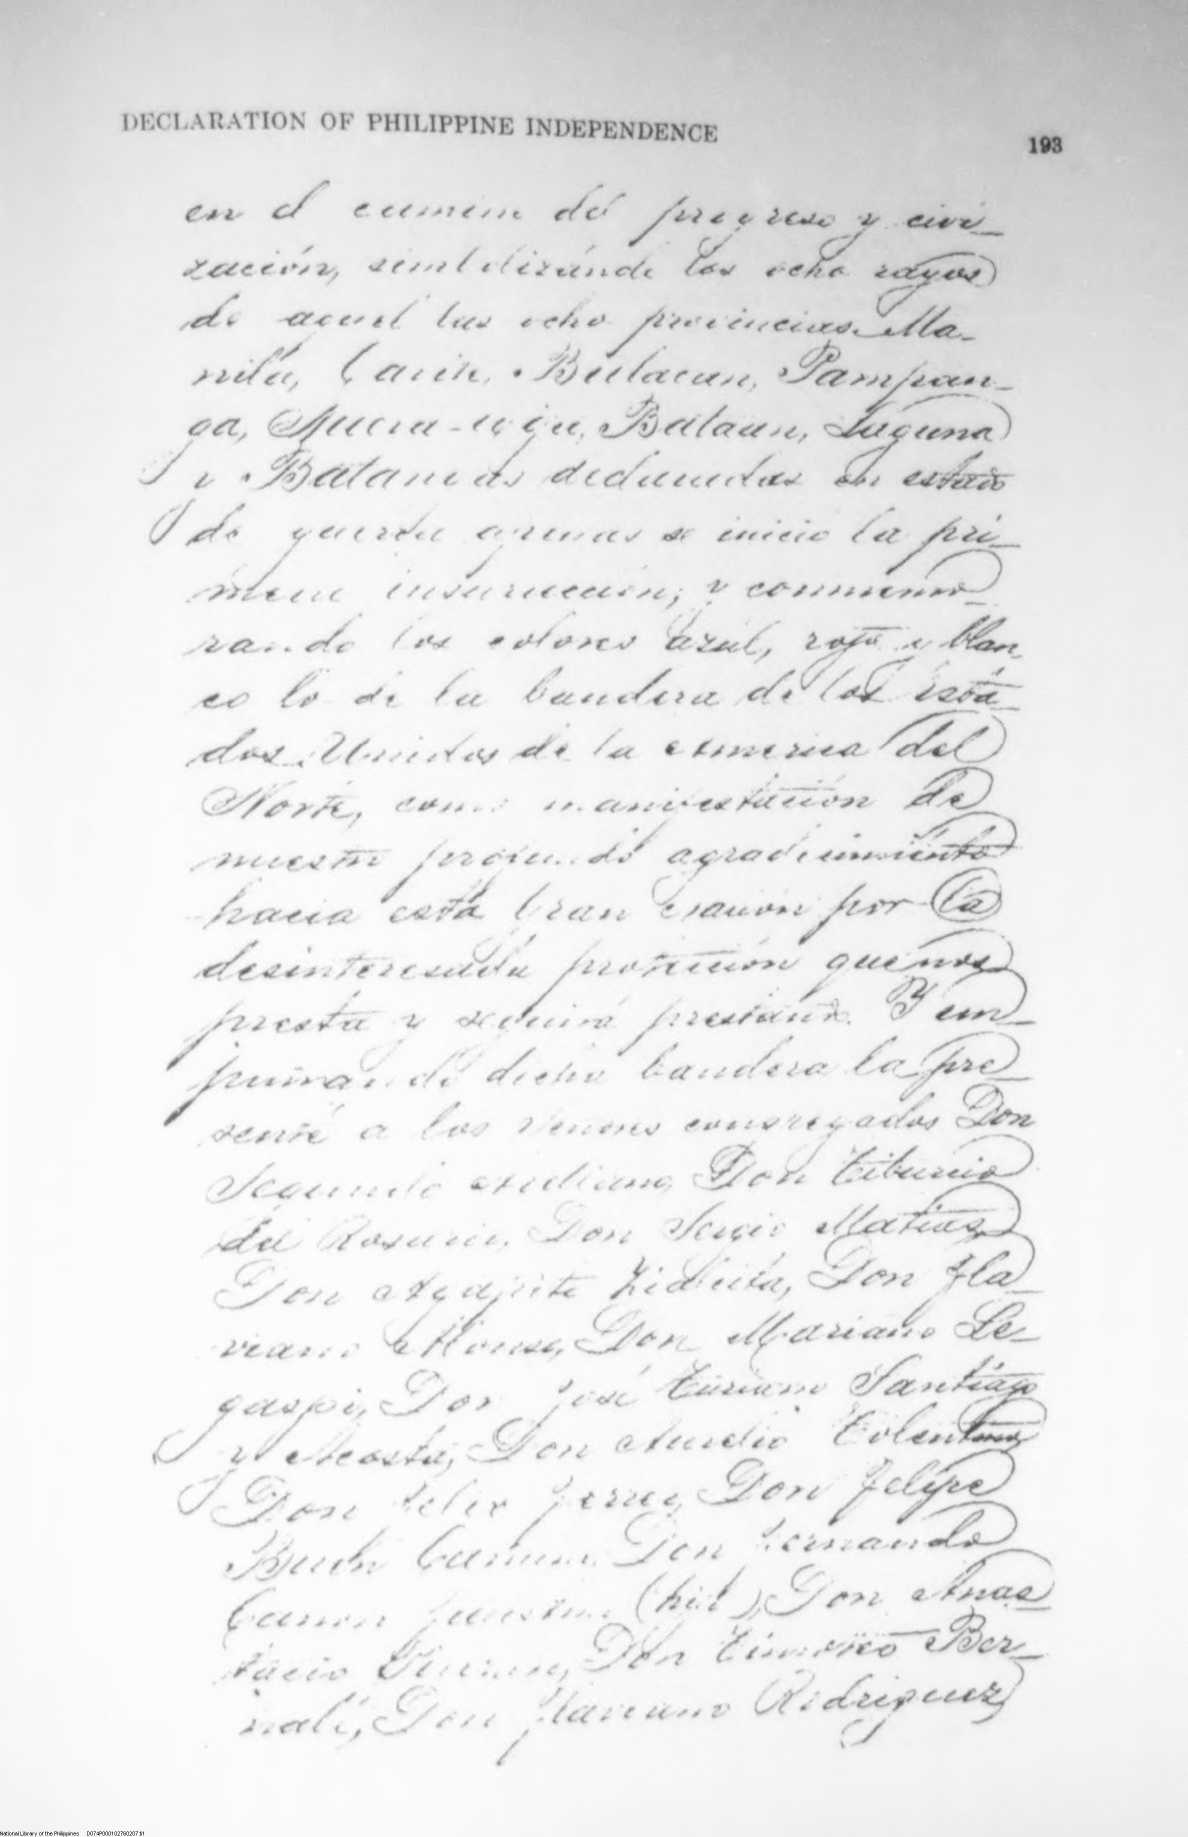 DECLARATION OF PHILIPPINE INDEPENDENCE
193
en el camino del progreso y civi-
zación, simbolizando los ocho rayos
de aquel las ocho provincias Ma-
nila, Cavite, Bulacan, Pampan-
ga, Nueva-ecija, Bataan, Laguna
y Batangas declaradas en estado
de guerra apenas se inicio la pri-
mera insurrección; y conmemo-
rando los colores azul, rojo y blan-
co lo de la bandera de los Esta-
dos Unidos de la America del
Norte, como manifestación de
nuestro profundo agradecimiento
hacia esta Gran Nación por la
desinteresada protección que nos
presta y seguirá prestando. Y em-
puñando dicha bandera la pre-
senté a los Señores congregados Don
Segundo Arellano, Don Tiburcio
del Rosario, Don Sergio Matias,
Don Agapito Zialcita, Don Fla-
viano Alonso, Don Mariano Le-
gaspi, Don José Turiano Santiago
y Acosta, Don Aurelio Tolentino,
Don Felix Ferrer, Don Felipe
Buen Camino, Don Fernando
Canon Faustino (hijo), Don Anas-
tacio Don Timoteo Ber-
nabé, Don Flaviano Rodriguez,
National Library of the Philippines